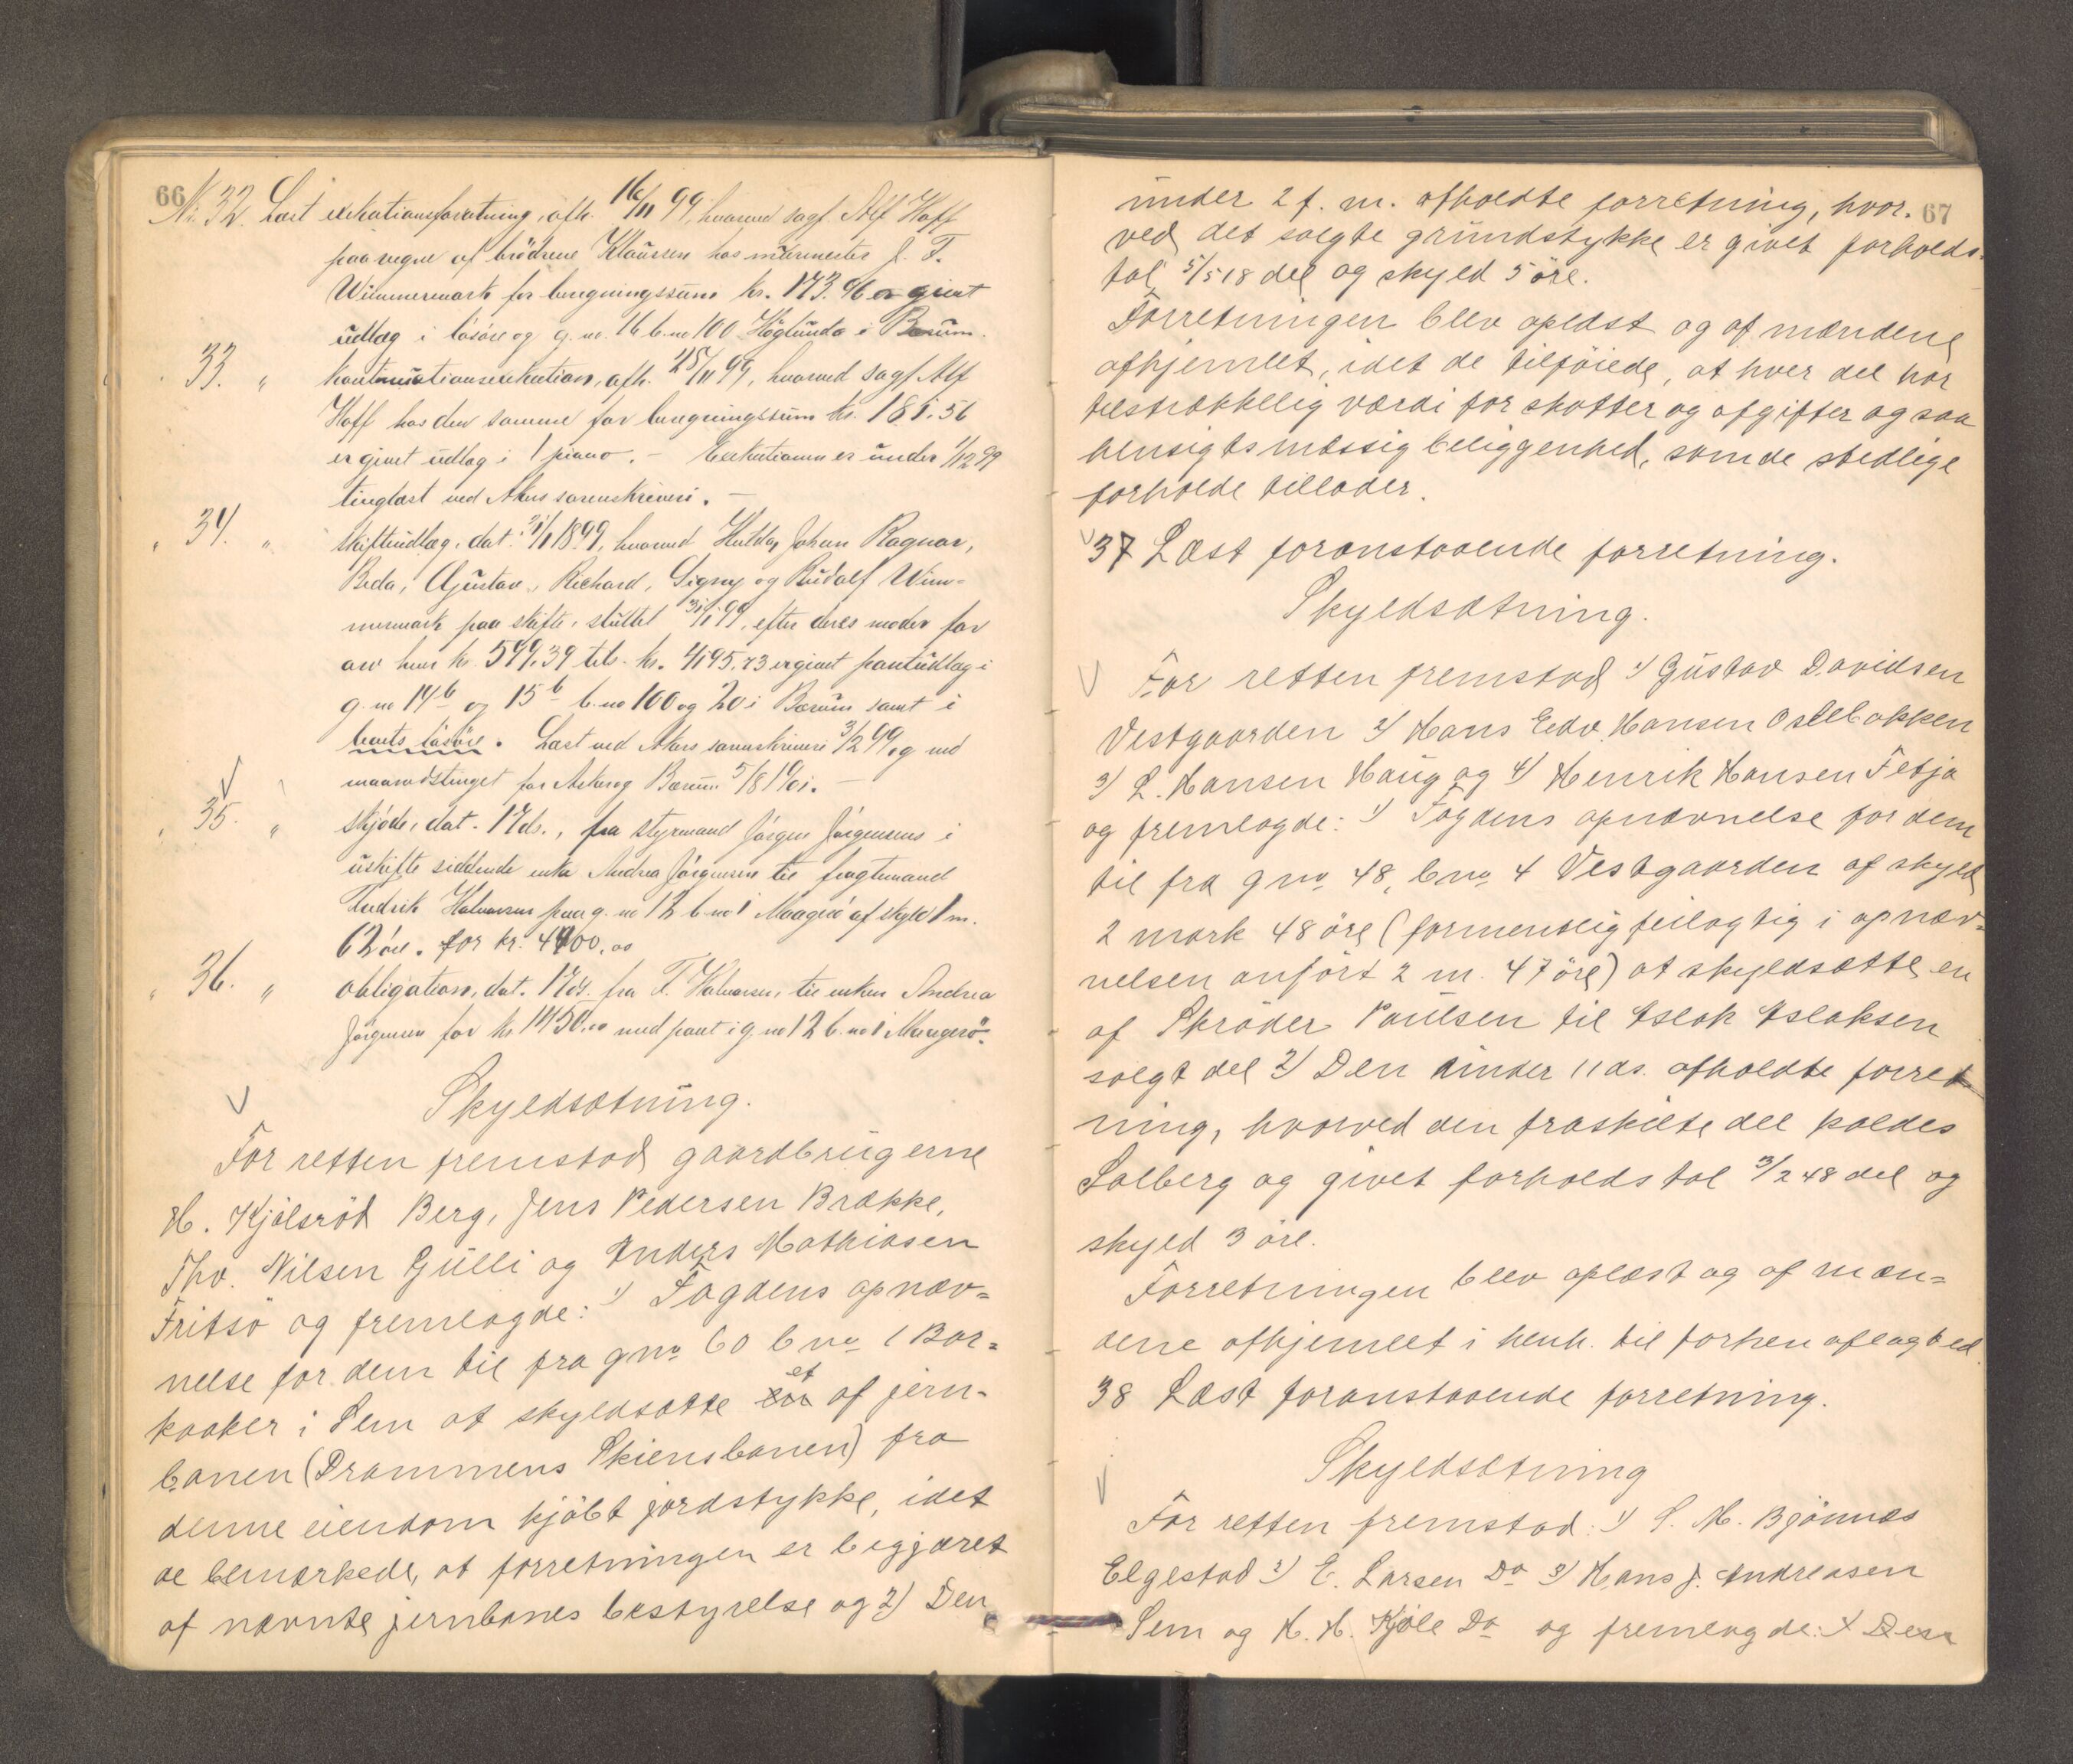 66
No. 32. Læst exekutionsforretning, afh. 16/11 99, hvorved sagf. Alf Hoff
paa vegne af brödrene Klaussen hos murmester J. T.
Wimmermark for beregningssum kr. 173.96 er givet
udlæg i lösöre og g. no. 16 b. no 100 Höglunda i Bærum.
33. " kontinuationsexekution, afh. 25/11 99, hvorved sagf. Alf
Hoff hos den samme for beregningssum kr. 181.56
er givet udlæg i 1 piano. – Exekutionen er under 1/12 99
tinglæst ved Akers sorenskriveri. –
" 34. " skifteudlæg, dat. 31/1 1899, hvorved Hulda, Johan Ragnar,
Beda, Gustav, Richard, Signy og Rudolf Wim-
mermark paa skifte, sluttet 31/1 99, efter deres moder for
arv hver kr. 599.39 tils. kr. 4195.73 er givet pantudlæg i
g. no 14 b og 15 b b. no 100 og 20 i Bærum samt i
boets lösöre. Læst ved Akers sorenskriveri 3/2 99 og ved
maanedstinget for Asker og Bærum 5/8 1901. –
" 35. " skjöde, dat. 17ds., fra styrmand Jörgen Jörgensens i
uskifte siddende enke Andrea Jörgensen til fragtemand
Fredrik Halvorsen paa g. no 12 b. no 1 Maagerö af skyld 1 m.
62 öre. for kr. 4400.00
" 36. " obligation, dat. 17ds. fra F. Halvorsen, til enken Andrea
Jörgensen for kr 1450.00 med pant i g. no 12 b. no 1 Maagerö.
Skyldsætning.
For retten fremstod gaardbrugerne
H. Kjölsröd Berg, Jens Pedersen Brække,
Thv. Nilsen Gulli og Anders Mathiasen
Fritsö og fremlagde: 1) Fogdens opnæv=
nelse for dem til fra gno 60 bno 1 Bar=
kaaker i Sem at skyldsætte en et af jern-
banen (Drammens Skiensbanen) fra
denne eiendom kjöbt jordstykke, idet
de bemærkede, at forretningen er begjæret
af nævnte jernbanes bestyrelse og 2) Den
67
under 2 f. m. afholdte forretning, hvor-
ved det solgte grundstykke er givet forholds-
tal 5/518 del og skyld 5 öre.
Forretningen blev oplæst og af mændene
afhjemlet, idet de tilföiede, at hver del har
tilstrækkelig værdi for skatter og afgifter og saa
hensigtsmæssig beliggenhed, som de stedlige
forholde tillader.
37 Læst foranstaaende forretning.
Skyldsætning.
For retten fremstod 1) Gustav Davidsen
Vestgaarden 2) Hans Edv. Hansen Oslebakken
3) L. Hansen Haug og 4) Henrik Hansen Fetja
og fremlagde: 1) Fogdens opnævnelse for dem
til fra gno 48, bno 4 Vestgaarden af skyld
2 mark 48 öre (formentlig feilagtig i opnæv=
nelsen anfört 2 m. 47 öre) at skyldsætte en
af Skröder Paulsen til Aslak Aslaksen
solgt del 2) Den under 11 ds. afholdte forret-
ning, hvorved den fraskilte del kaldes
Solberg og givet forholdstal 3/248 del og
skyld 3 öre.
Forretningen blev oplæst og af mæn=
dene afhjemlet i henh. til forhen aflagt ed.
38 Læst foranstaaende forretning.
Skyldsætning
For retten fremstod: 1) S. M. Bjönnæs
Elgestad 2) E. Larsen Do 3) Hans J. Andreasen
Sem og H. H. Kjöle Do og fremlagde: 1 Den